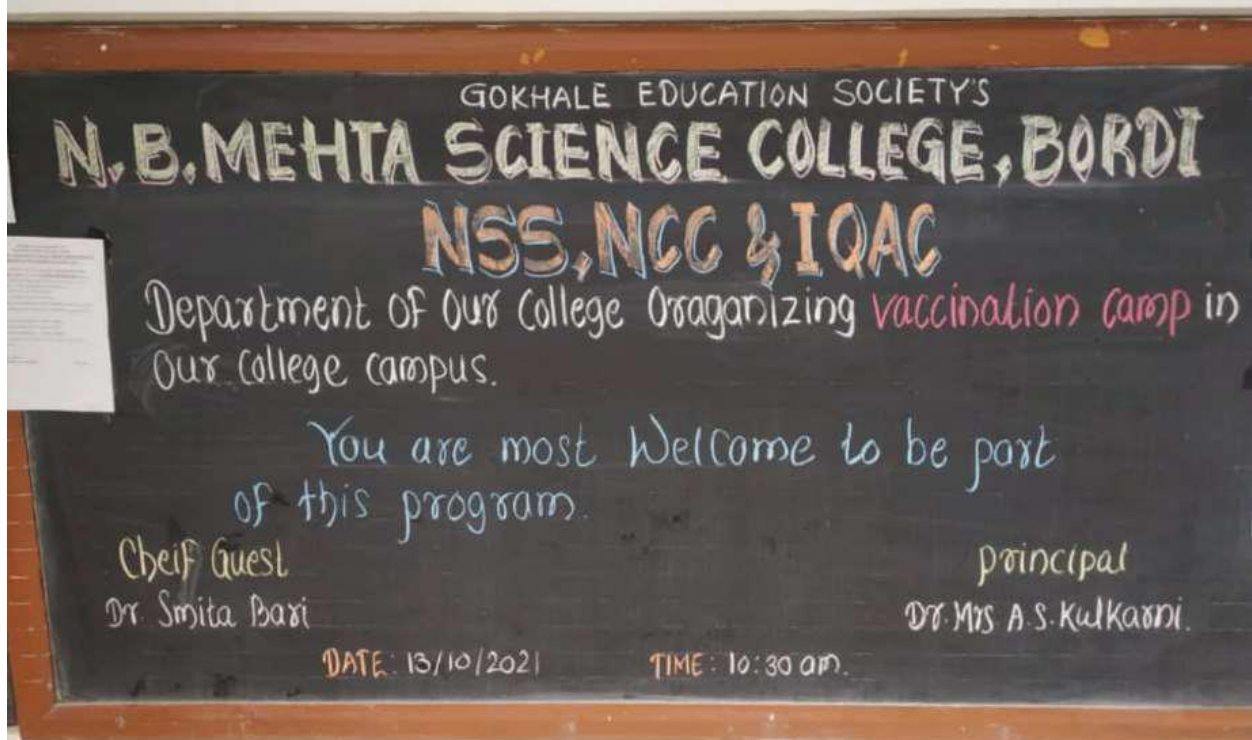 GOKHALE EDUCATION SOCIETY'S
N.B.MEHTA SCIENCE COLLEGE, BORDI
NSS, NCC & IQAC
Department of our college Oraganizing vaccination camp in
Our college campus.
You are most Welcome to be part
of this program.
Cheif Guest
principal
Dr. Smita Bari
Dr. Mrs A.S. Kulkarni.
DATE: 13/10/2021 TIME: 10:30 am.